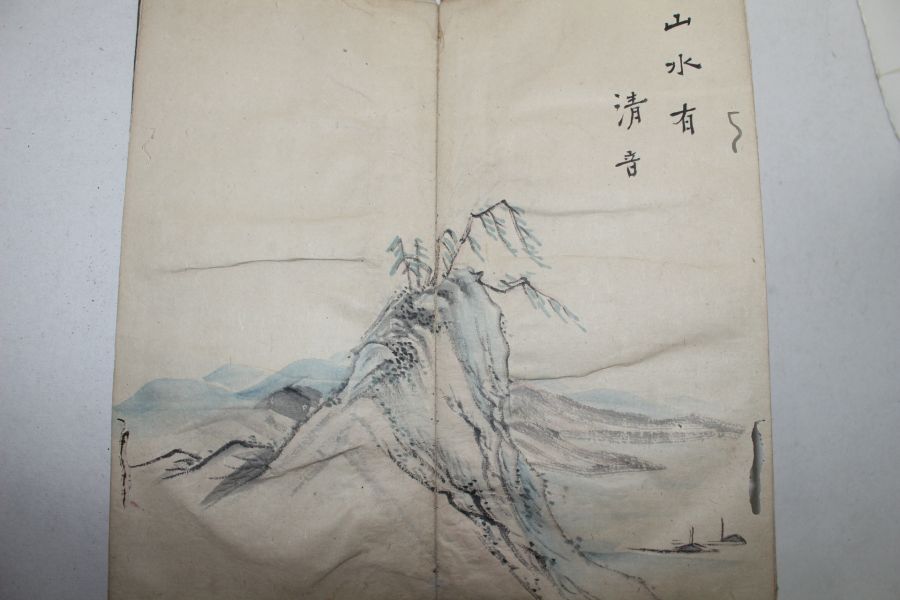 山水有
清音